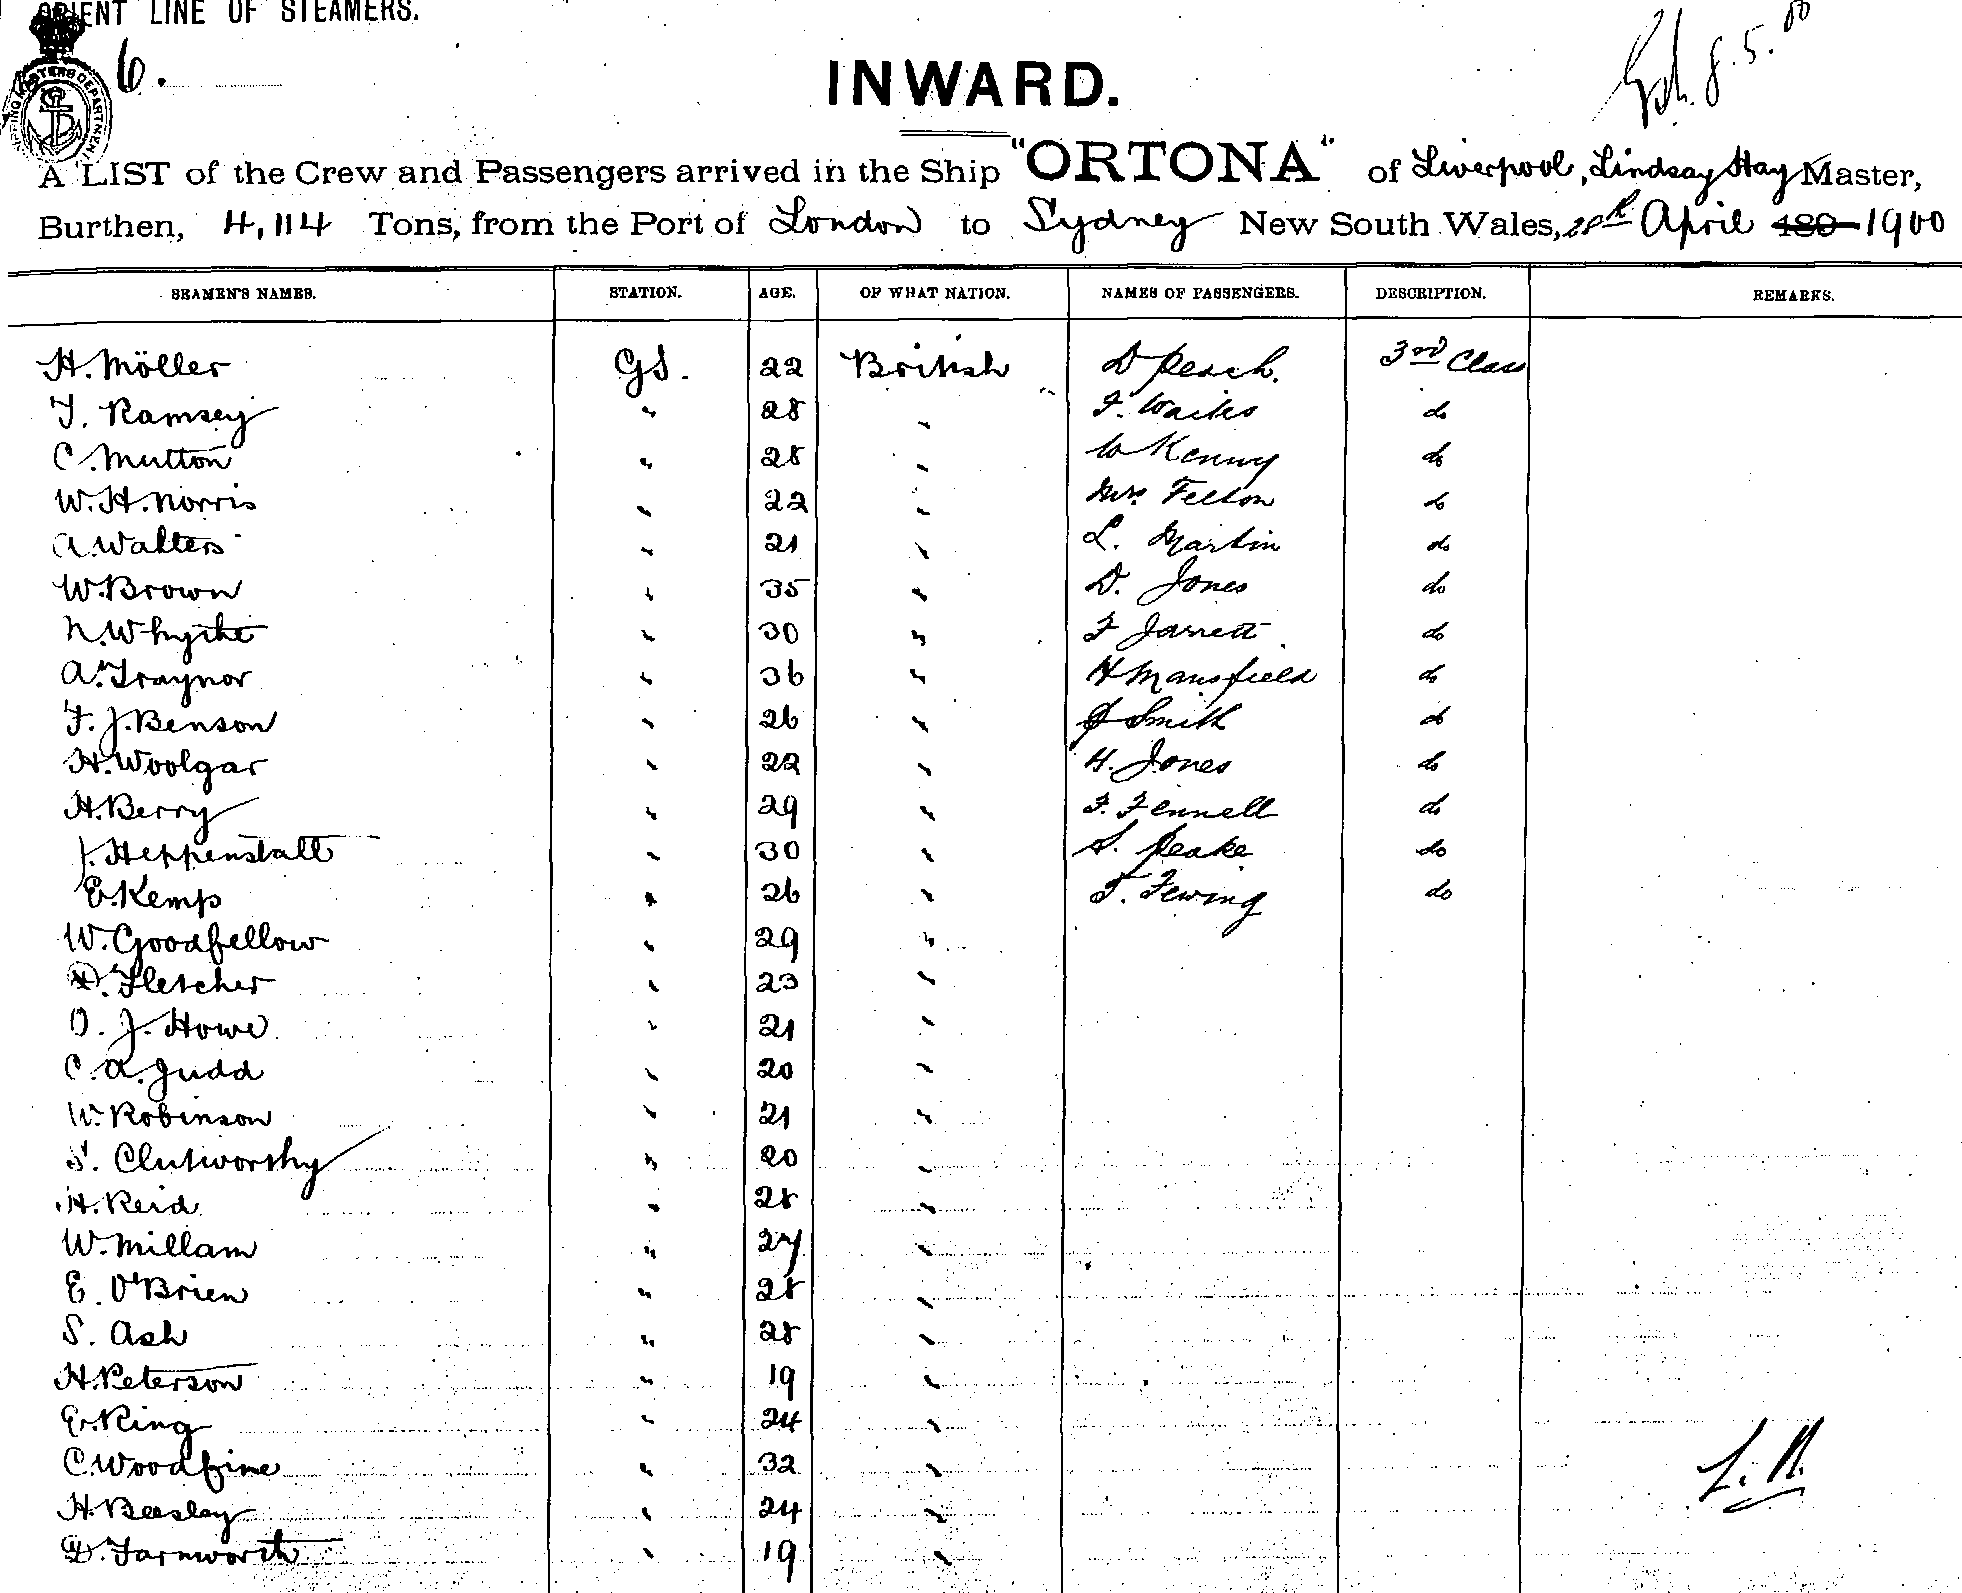 ORIENT LINE OF STEAMERS.
6.
INWARD.
8.5.00
A LIST of the Crew and Passengers arrived in the Ship "ORTONA" of Liverpool, Lindsay Hay Master,
Burthen, 4,114 Tons, from the Port of London to Sydney New South Wales, 28th April 189 1900
SEAMEN'S NAMES. STATION. AGE. OF WHAT NATION. NAMES OF PASSENGERS. DESCRIPTION. REMARKS.
H. Möller GS. 22 British D Peach. 3rd Class
T. Ramsey " 28 " F. Waites do
C. Mutton " 28 " W Kenny do
W. H. Norris " 22 " Mrs Felton do
A. Walters " 21 " L. Martin do
W. Brown " 35 " D. Jones do
N. Whythe " 30 " F Jarrett do
A. Traynor " 36 " H Mansfield do
F. J. Benson " 26 " J Smith do
H. Woolgar " 22 " H. Jones do
H. Berry " 29 " F. Fennell do
J. Heppenstall " 30 " S. Peake do
E. Kemp " 26 " T. Fewing do
W. Goodfellow " 29 "
Fletcher " 23 "
O. J. Howe " 21 "
C. A. Judd " 20 "
W. Robinson " 21 "
S. Clutworthy " 20 "
H. Reid " 28 "
W. Millam " 27 "
E. O'Brien " 28 "
S. Ash " 28 "
H. Peterson " 19 "
E. King " 24 "
C. Woodfine " 32 "
H. Beesley " 24 "
D. Farnworth " 19 "